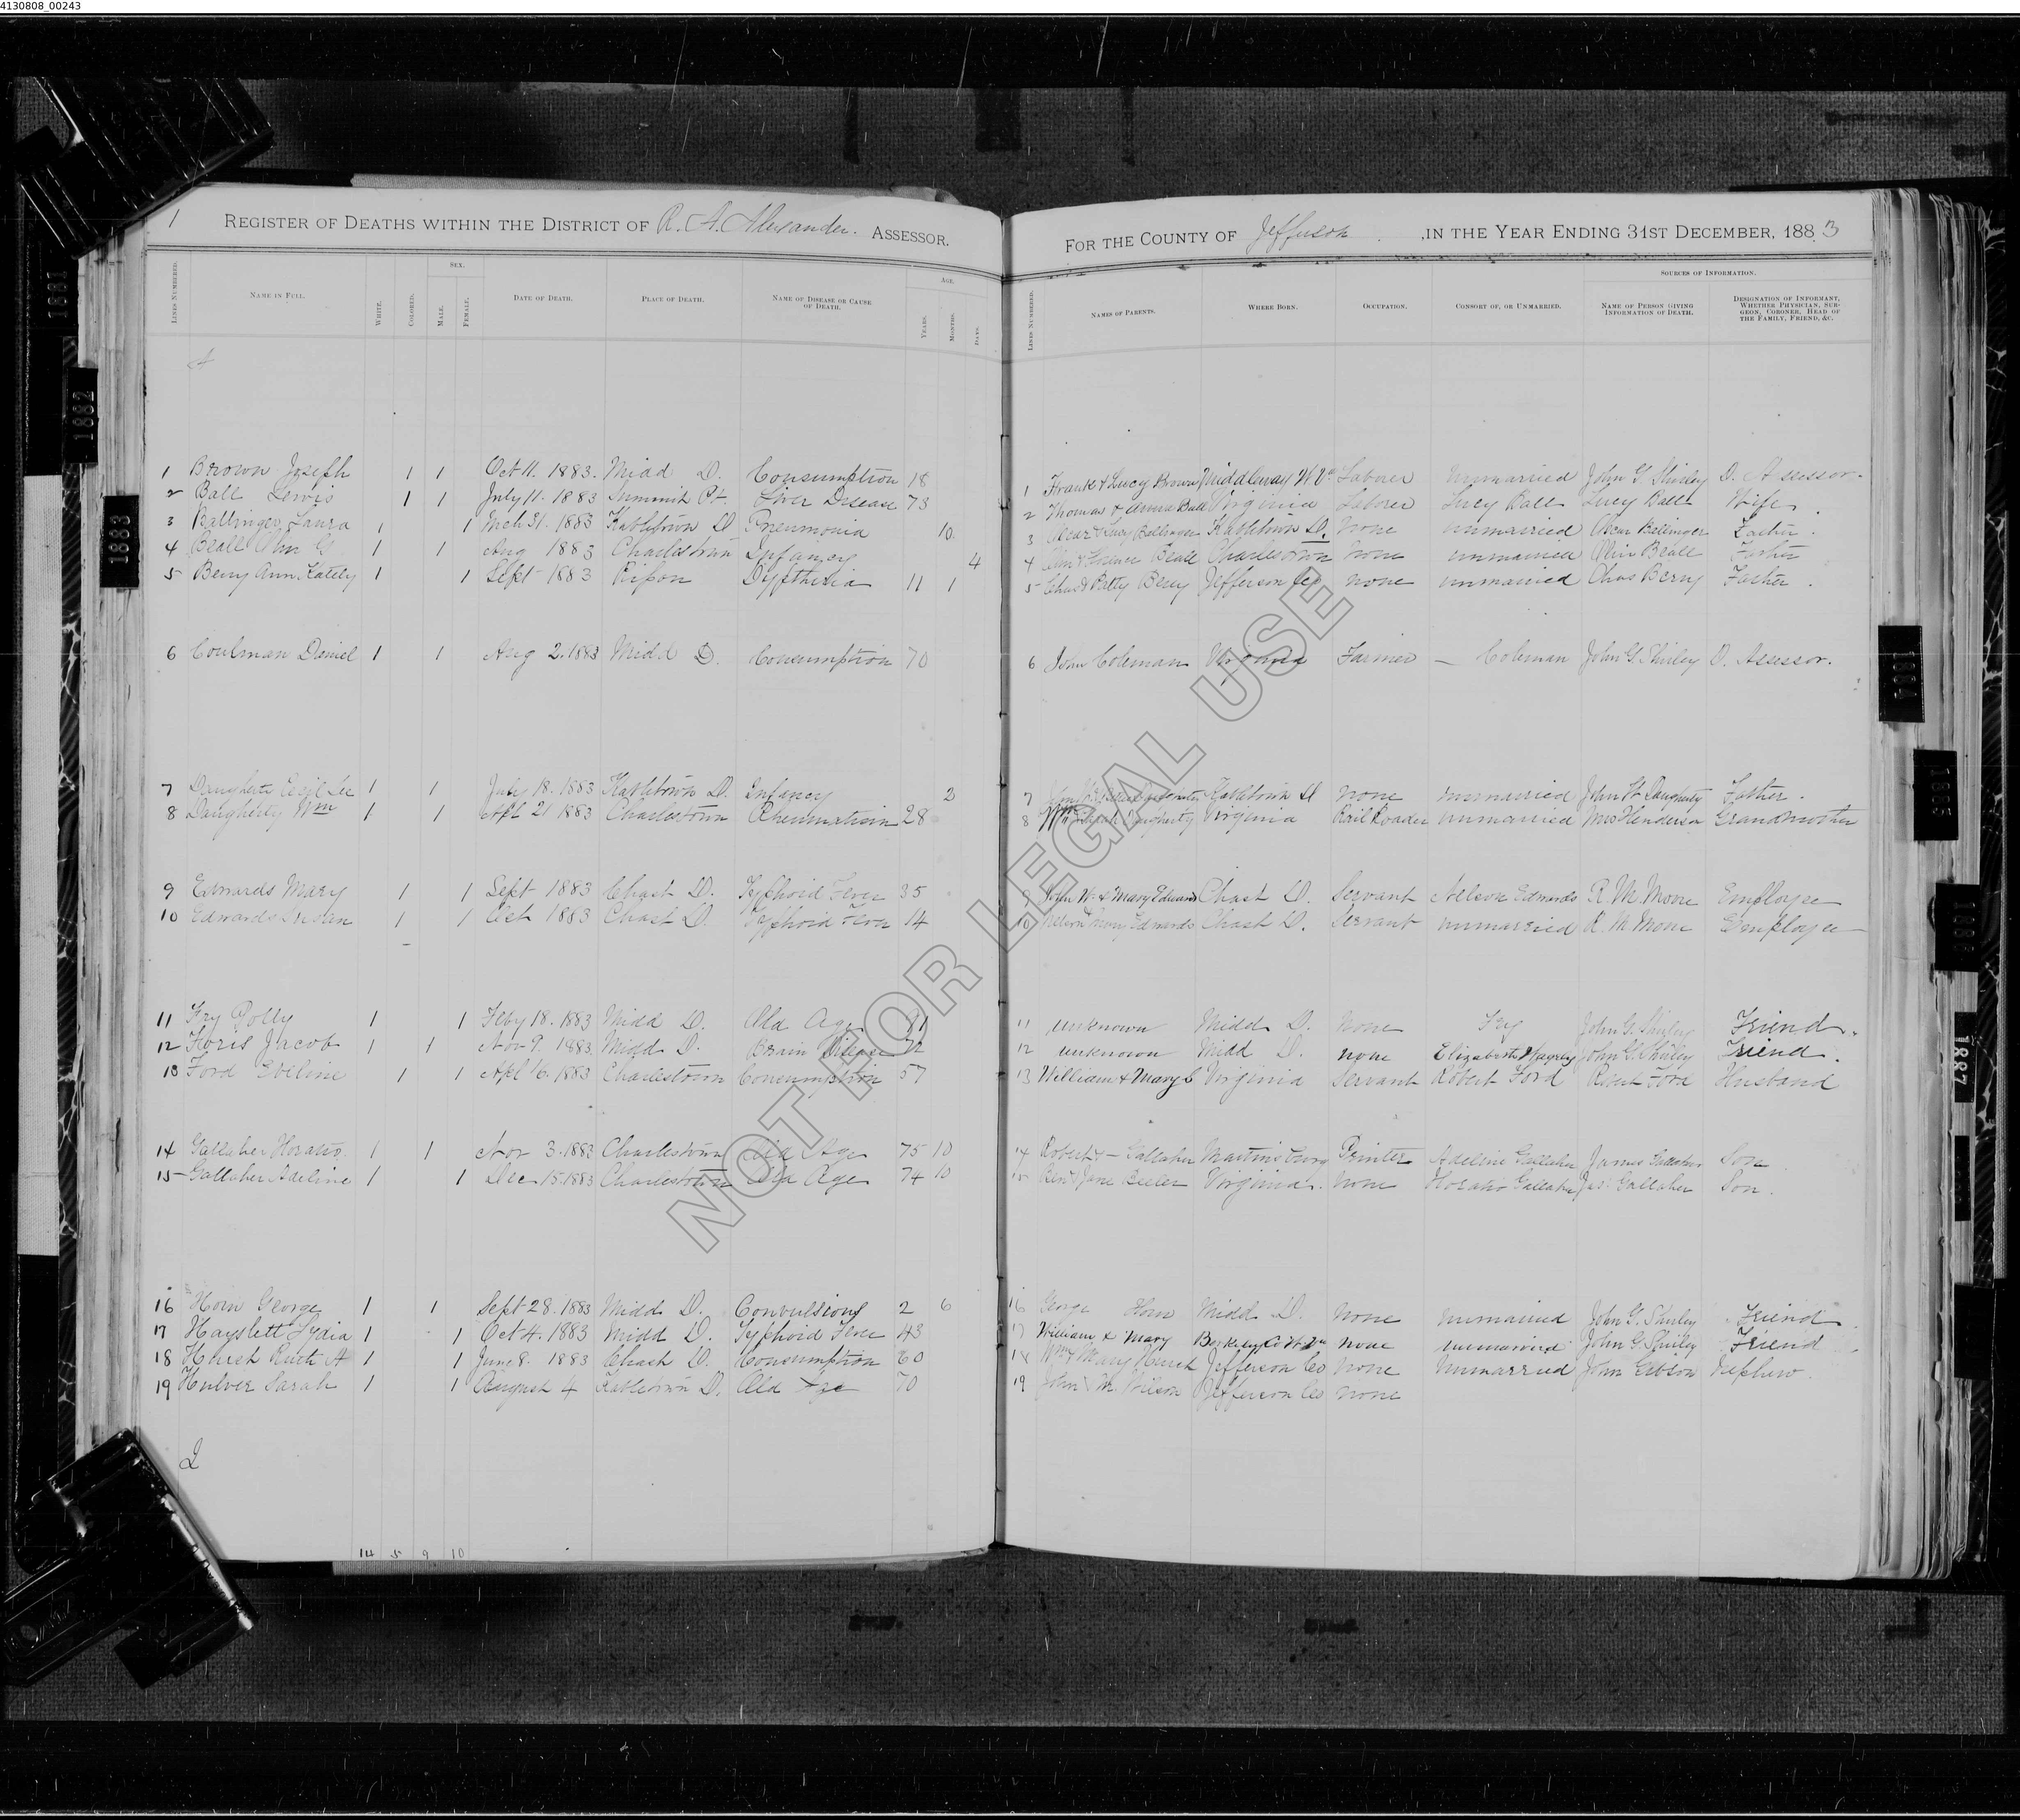 4130808_00243
1 REGISTER OF DEATHS WITHIN THE DISTRICT OF R. A. Alexander. ASSESSOR.
LINES NUMBERED. NAME IN FULL. WHITE. COLORED. SEX. MALE. FEMALE. DATE OF DEATH. PLACE OF DEATH. NAME OF DISEASE OR CAUSE OF DEATH. AGE. YEARS. MONTHS. DAYS.
A
1 Brown Joseph 1 1 Oct 11. 1883. Midd D. Consumption 18
2 Ball Lewis 1 1 July 11. 1883 Summit Pt Liver Disease 73
3 Ballinger Laura 1 1 Mch 31. 1883 Kabletown D Pneumonia 10
4 Beall G 1 1 Aug 1883 Charlestown Infancy 4
5 Berry Ann Kately 1 1 Sept 1883 Rippon Dyptheria 11 1
6 Coulman Daniel 1 1 Aug 2. 1883 Midd D. Consumption 70
7 Daugherty Cecil Lee 1 1 July 18. 1883 Kabletown D. Infancy 2
8 Daugherty Wm 1 1 Apl 21 1883 Charlestown Rheumatism 28
9 Edwards Mary 1 1 Sept 1883 Chast D. Typhoid Fever 35
10 Edwards 1 1 Oct 1883 Chast D. Typhoid Fever 14
11 Fry Polly 1 1 Feby 18. 1883 Midd D. Old Age 81
12 Floris Jacob 1 1 Nov 9. 1883. Midd D. Brain Disease 72
13 Ford Eveline 1 1 Apl 16. 1883 Charlestown Consumption 57
14 Gallaher Horatio 1 1 Nov 3. 1883 Charlestown Old Age 75 10
15 Gallaher Adeline 1 1 Dec 15. 1883 Charlestown Old Age 74 10
16 Horn George 1 1 Sept 28. 1883 Midd D. Convulsions 2 6
17 Hayslett Lydia 1 1 Oct 4. 1883 Midd D. Typhoid Fever 43
18 Hurst Ruth A 1 1 June 8. 1883 Chast D. Consumption 60
19 Hulver Sarah 1 1 August 4 Kabletown D. Old Age 70
I
14 5 9 10
FOR THE COUNTY OF Jefferson, IN THE YEAR ENDING 31ST DECEMBER, 1883
LINES NUMBERED. NAMES OF PARENTS. WHERE BORN. OCCUPATION. CONSORT OF, OR UNMARRIED. SOURCES OF INFORMATION. NAME OF PERSON GIVING INFORMATION OF DEATH. DESIGNATION OF INFORMANT, WHETHER PHYSICIAN, SURGEON, CORONER, HEAD OF THE FAMILY, FRIEND, &C.
1 Frank & Lucy Brown Middleway W Va Laborer Unmarried John G. Shirley D. Assessor.
2 Thomas & Anna Ball Virginia Laborer Lucy Ball Lucy Ball Wife.
3 Oscar & Lucy Ballinger Kabletown D. None unmarried Oscar Ballinger Father.
4 Beall Charlestown None unmarried Beall Father
5 Chas & Betty Berry Jefferson Co none unmarried Chas Berry Father.
6 John Coleman Virginia Farmer — Coleman John G. Shirley D. Assessor.
7 Kabletown D none unmarried John H Daugherty Father.
8 Wm & Daugherty Virginia Rail Roader unmarried Mrs Henderson Grandmother
9 John W. & Mary Edwards Chast D. Servant Nelson Edwards R. M. Moore Employee
10 Nelson & Mary Edwards Chast D. Servant unmarried R. M. Moore Employee
11 unknown Midd D. None Fry John G. Shirley Friend.
12 unknown Midd D. none Elizabeth John G. Shirley Friend.
13 William & Mary C Virginia Servant Robert Ford Robert Ford Husband
14 Robert & — Gallaher Martinsburg Printer Adeline Gallaher James Gallaher Son
15 Ben & Jane Beeler Virginia. none Horatio Gallaher Jas. Gallaher Son.
16 George Horn Midd D. none unmarried John G. Shirley Friend
17 William & Mary Berkeley Co W. Va none unmarried John G. Shirley Friend
18 Wm & Mary Hurst Jefferson Co none Unmarried John Gibson Nephew.
19 John & M. Wilson Jefferson Co none
NOT FOR LEGAL USE
1881
1882
1883
1884
1885
1886
1887